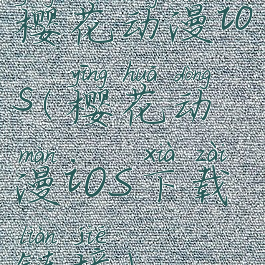 樱花动漫iO
yīng huā dòng
S(樱花动
màn xià zài
漫iOS下载
liàn jiē
链接)